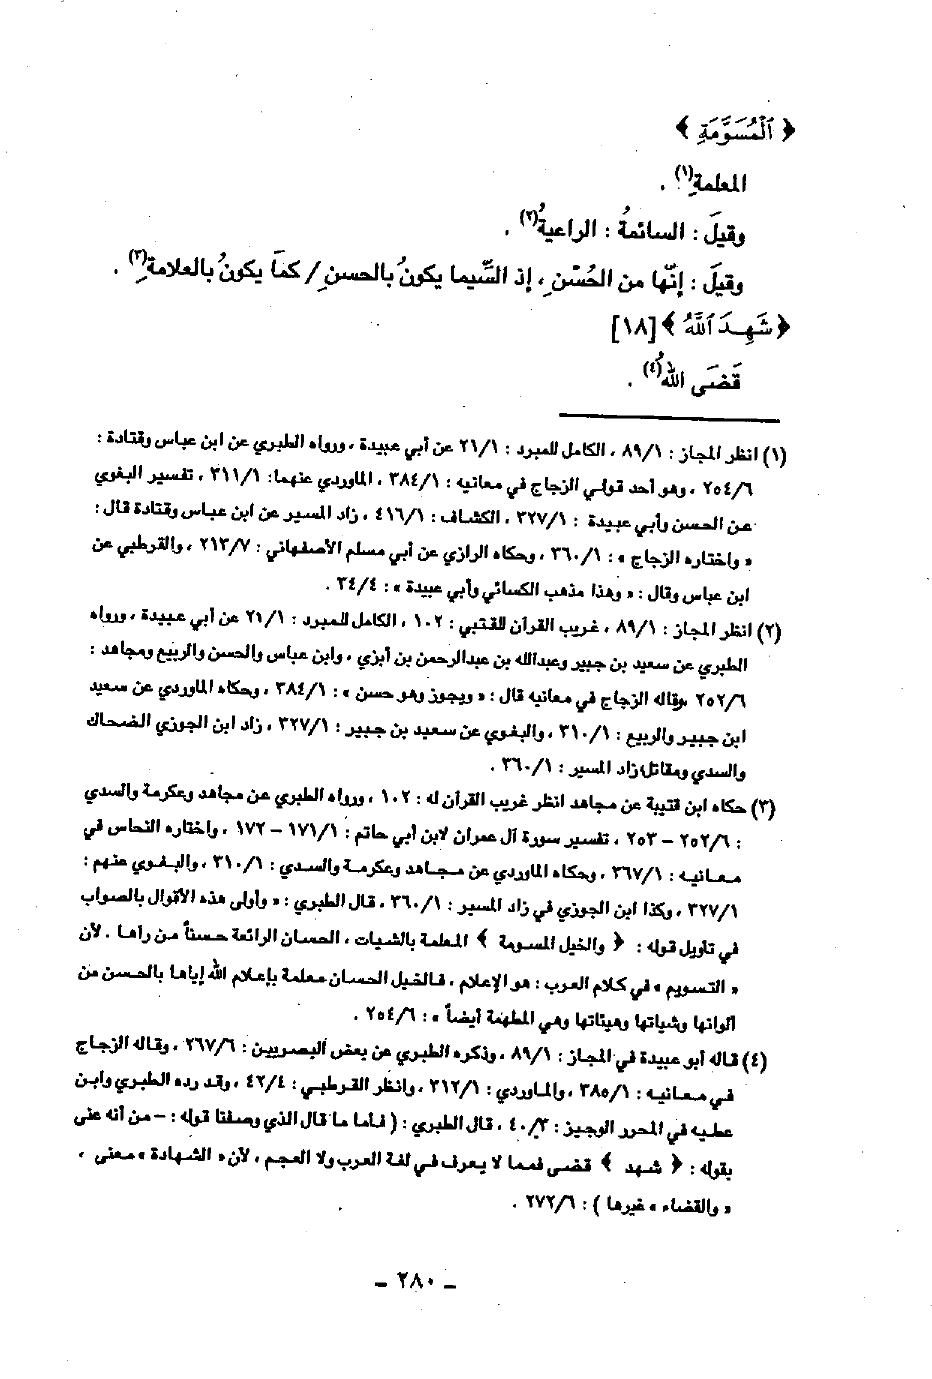 ﴿ ٱلْمُسَوَّمَةِ ﴾
المعلمةِ(١) .
وقيلَ : السائمةُ : الراعيةُ(٢) .
وقيلَ : إنّها من الحُسْنِ ، إذ السِّيما يكونُ بالحسنِ / كمَا يكونُ بالعلامةِ(٣) .
﴿ شَهِدَ ٱللَّهُ ﴾ [١٨]
قَضَى اللهُ(٤) .
(١) انظر المجاز : ٨٩/١ ، الكامل للمبرد : ٢١/١ عن أبي عبيدة ، ورواه الطبري عن ابن عباس وقتادة :
٢٥٤/٦ ، وهو أحد قولي الزجاج في معانيه : ٣٨٤/١ ، الماوردي عنهما: ٣١١/١ ، تفسير البغوي
عن الحسن وأبي عبيدة : ٣٢٧/١ ، الكشاف : ٤١٦/١ ، زاد المسير عن ابن عباس وقتادة قال :
« واختاره الزجاج » : ٣٦٠/١ ، وحكاه الرازي عن أبي مسلم الأصفهاني : ٢١٣/٧ ، والقرطبي عن
ابن عباس وقال : « وهذا مذهب الكسائي وأبي عبيدة » : ٣٤/٤ .
(٢) انظر المجاز : ٨٩/١ ، غريب القرآن للقتبي : ١٠٢ ، الكامل للمبرد : ٢١/١ عن أبي عبيدة ، ورواه
الطبري عن سعيد بن جبير وعبدالله بن عبدالرحمن بن أبزي ، وابن عباس والحسن والربيع ومجاهد :
٢٥٢/٦ ،وقاله الزجاج في معانيه قال : « ويجوز وهو حسن » : ٣٨٤/١ ، وحكاه الماوردي عن سعيد
ابن جبير والربيع : ٣١٠/١ ، والبغوي عن سعيد بن جبير : ٣٢٧/١ ، زاد ابن الجوزي الضحاك
والسدي ومقاتل:زاد المسير : ٣٦٠/١ .
(٣) حكاه ابن قتيبة عن مجاهد انظر غريب القرآن له : ١٠٢ ، ورواه الطبري عن مجاهد وعكرمة والسدي
: ٢٥٢/٦ – ٢٥٣ ، تفسير سورة آل عمران لابن أبي حاتم : ١٧١/١ – ١٧٢ ، واختاره النحاس في
معانيه : ٣٦٧/١ ، وحكاه الماوردي عن مجاهد وعكرمة والسدي : ٣١٠/١ ، والبغوي عنهم :
٣٢٧/١ ، وكذا ابن الجوزي في زاد المسير : ٣٦٠/١ ، قال الطبري : « وأولى هذه الأقوال بالصواب
في تأويل قوله : ﴿ والخيل المسومة ﴾ المعلمة بالشيات ، الحسان الرائعة حسناً من رآها . لأن
« التسويم » في كلام العرب : هو الإعلام ، فالخيل الحسان معلمة بإعلام الله إياها بالحسن من
ألوانها وشياتها وهيئاتها وهي المطهمة أيضاً » : ٢٥٤/٦ .
(٤) قاله أبو عبيدة في المجاز : ٨٩/١ ، وذكره الطبري عن بعض البصريين : ٢٦٧/٦ ، وقاله الزجاج
في معانيه : ٣٨٥/١ ، والماوردي : ٣١٢/١ ، وانظر القرطبي : ٤٢/٤ ، وقد رده الطبري وابن
عطيه في المحرر الوجيز : ٤٠/٣ ، قال الطبري : ( فأما ما قال الذي وصفنا قوله : – من أنه عنى
بقوله : ﴿ شهد ﴾ قضى فمما لا يعرف في لغة العرب ولا العجم ، لأن « الشهادة » معنى ،
« والقضاء » غيرها ) : ٢٧٢/٦ .
– ٢٨٠ –